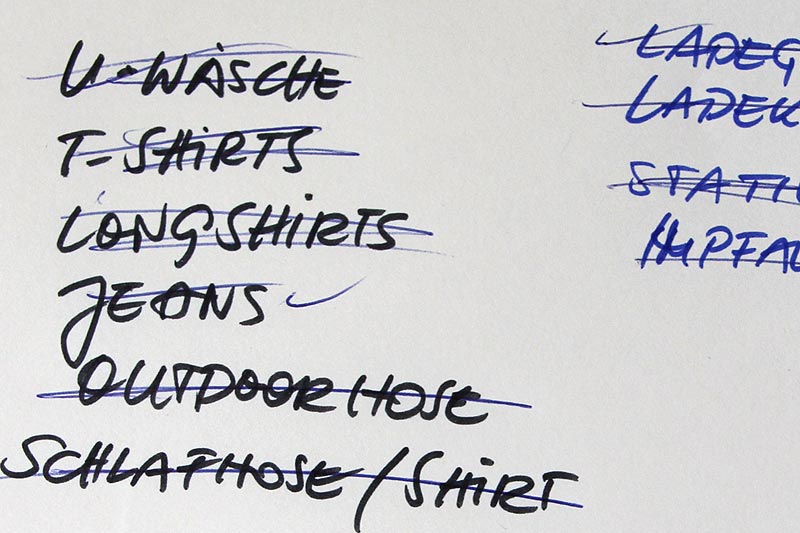 U-WÄSCHE
T-SHIRTS
LONGSHIRTS
JEANS
OUTDOORHOSE
SCHLAFHOSE/SHIRT
LADEG
LADEK
STATI